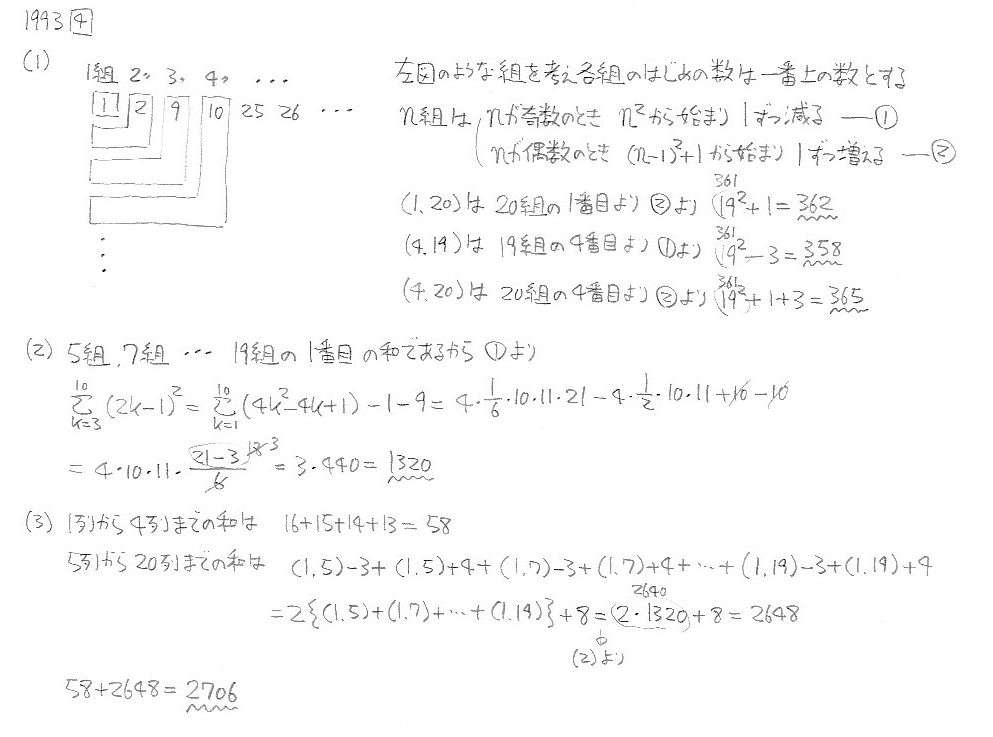 1993 4
(1)
1組 2〃 3〃 4〃 ・・・
1 2 9 10 25 26 ・・・
左図のような組を考え各組のはじめの数は一番上の数とする
n組は nが奇数のとき n²から始まり 1ずつ減る ―①
nが偶数のとき (n-1)²+1 から始まり 1ずつ増える ―②
361
(1,20)は 20組の1番目より ②より 19²+1=362
361
(4,19)は 19組の4番目より ①より 19²-3=358
361
(4,20)は 20組の4番目より ②より 19²+1+3=365
(2) 5組,7組 ・・・ 19組の1番目の和であるから ①より
10Σk=3 (2k-1)² = 10Σk=1 (4k²-4k+1) -1-9 = 4・1/6・10・11・21-4・1/2・10・11+10-10
= 4・10・11・(21-3)/6 18 3 = 3・440 = 1320
(3) 1列から4列までの和は 16+15+14+13=58
5列から20列までの和は (1,5)-3+(1,5)+4+(1,7)-3+(1,7)+4+…+(1,19)-3+(1,19)+4
2640
=2{(1,5)+(1,7)+…+(1,19)}+8=2・1320+8=2648
(2)より
58+2648=2706